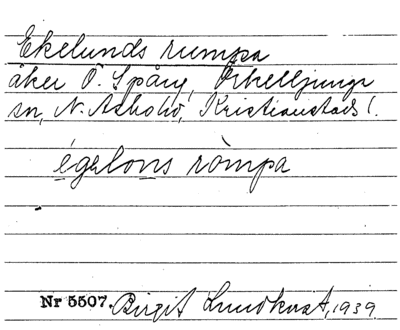 Ekelunds rumpa
åker Ö. Spång, Örkelljunga
sn, N. Åsbohd, Kristianstads l.
égəlons ròmpa
Nr 5507. Birgit Lundkvist, 1939